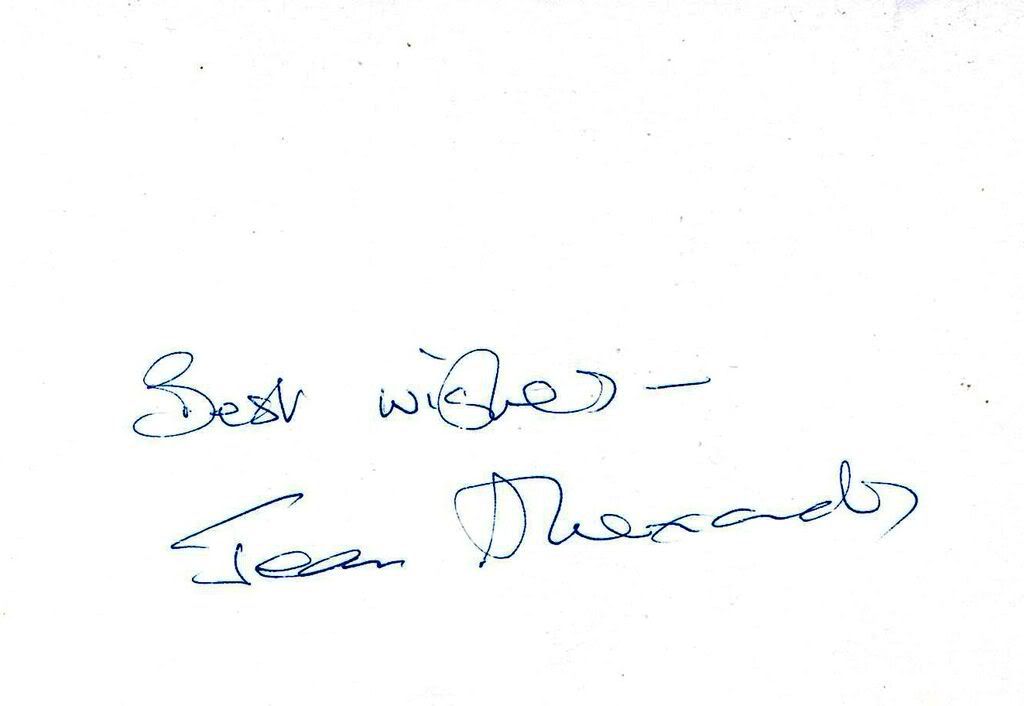 Best wishes -
Jean Alexander